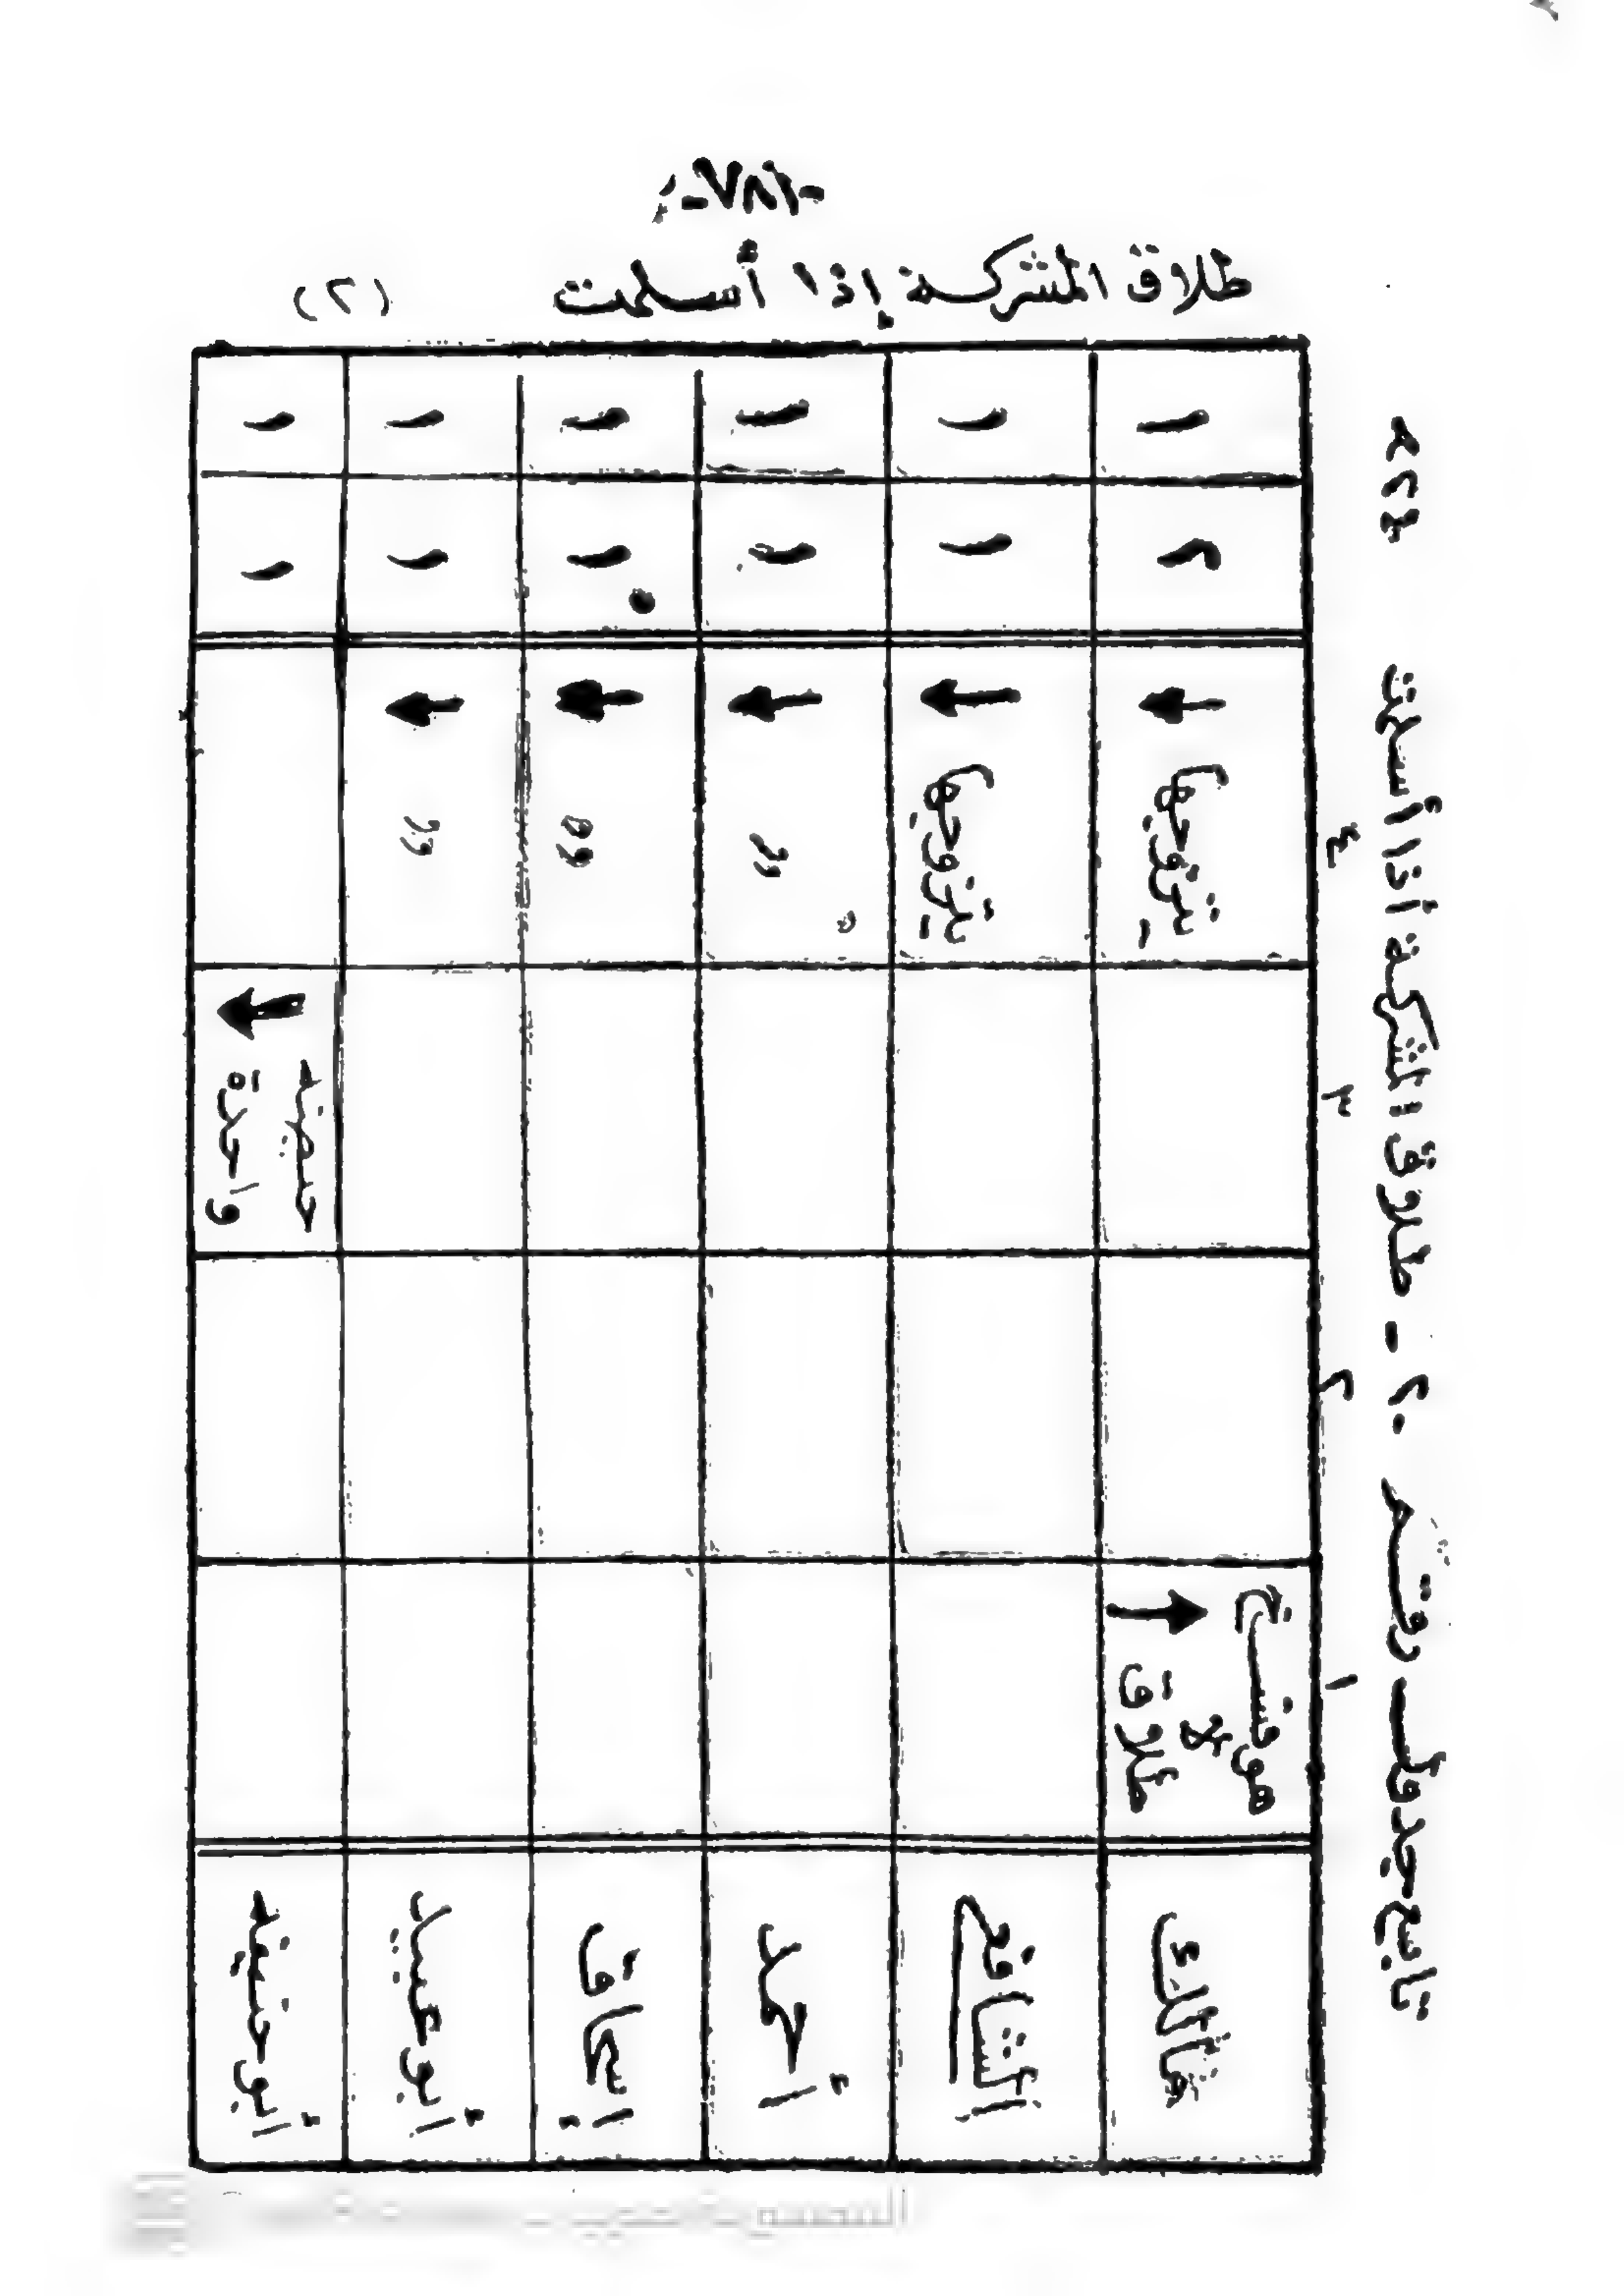 -٧٨١-
طلاق المشركة إذا أسلمت (٢)
تابع جدول رقم ٢٠ - طلاق المشركة أذا أسلمت ٢٢٤
١ ٢ ٣ ٤
مالك هو فسخ لا طلاق يتزوجها ٢ ١
الشافعي يتزوجها ١ ١
أحمد " ١ ١
إسحاق " ١ ١
أبو عبيد " ١ ١
أبو حنيفه حيضه واحدة ١ ١